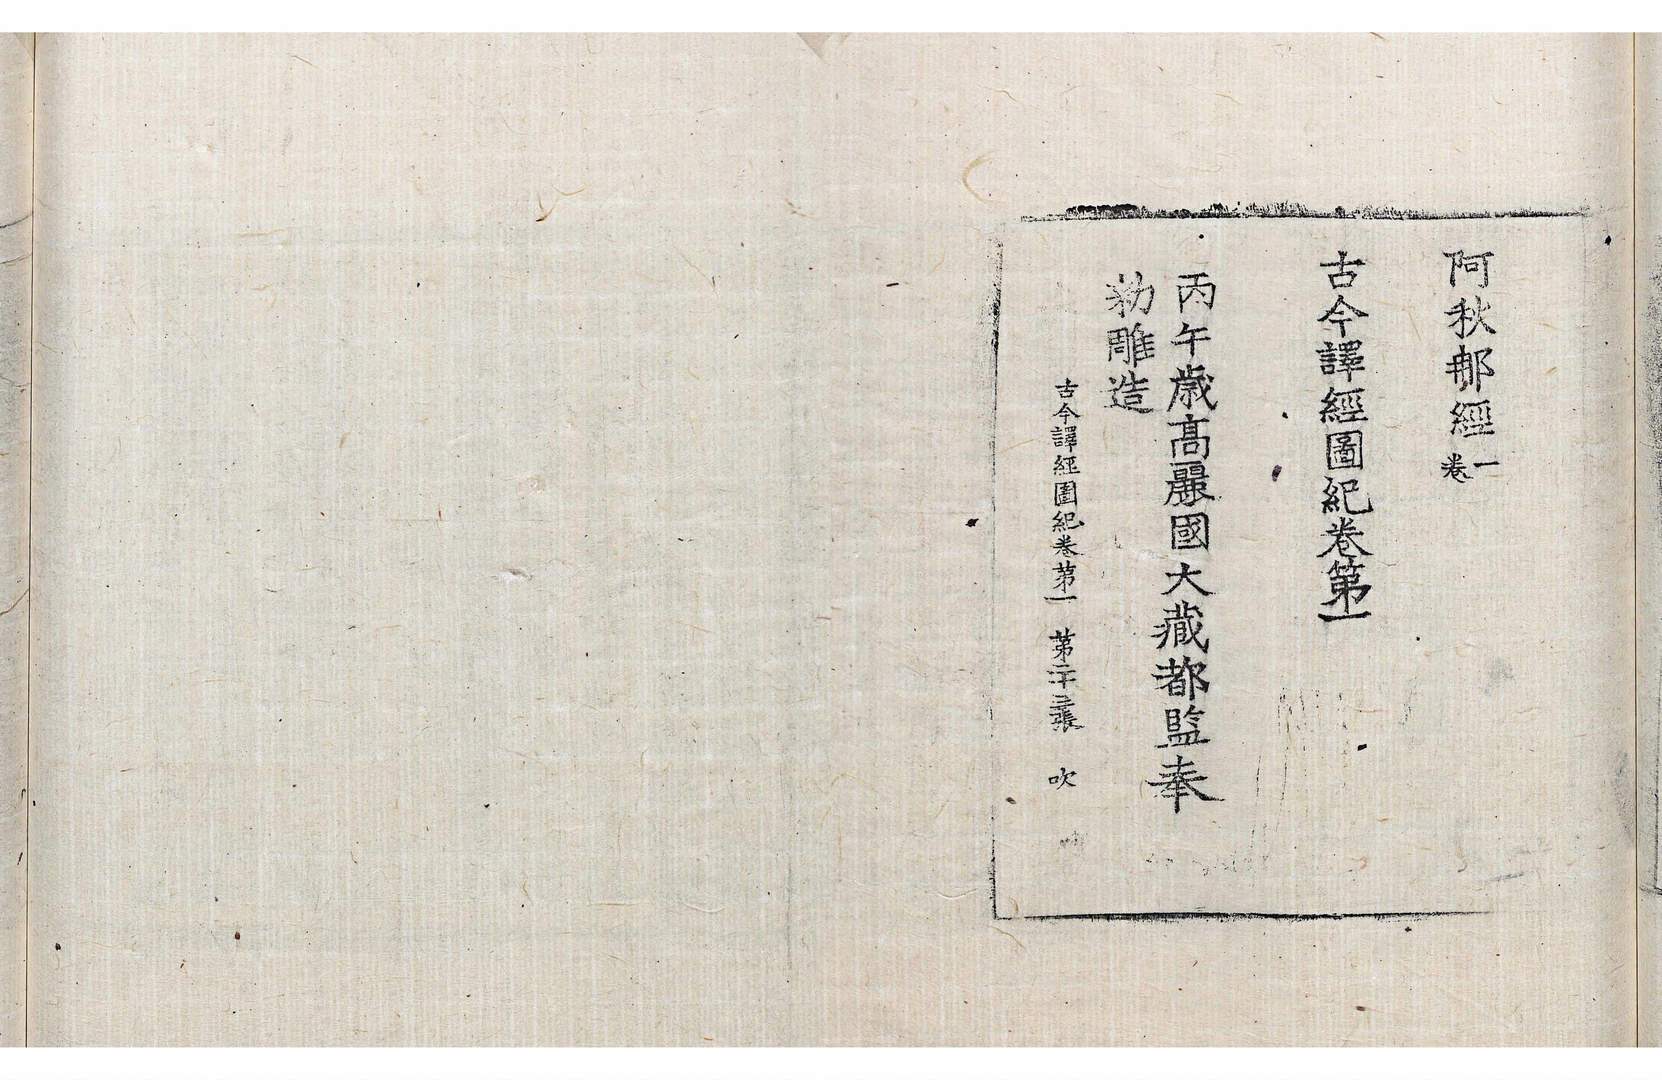 阿秋那經一卷
古今譯經圖紀卷第一
丙午歳高麗國大藏都監奉
勅雕造
古今譯經圖紀卷第一 第二十三張 吹